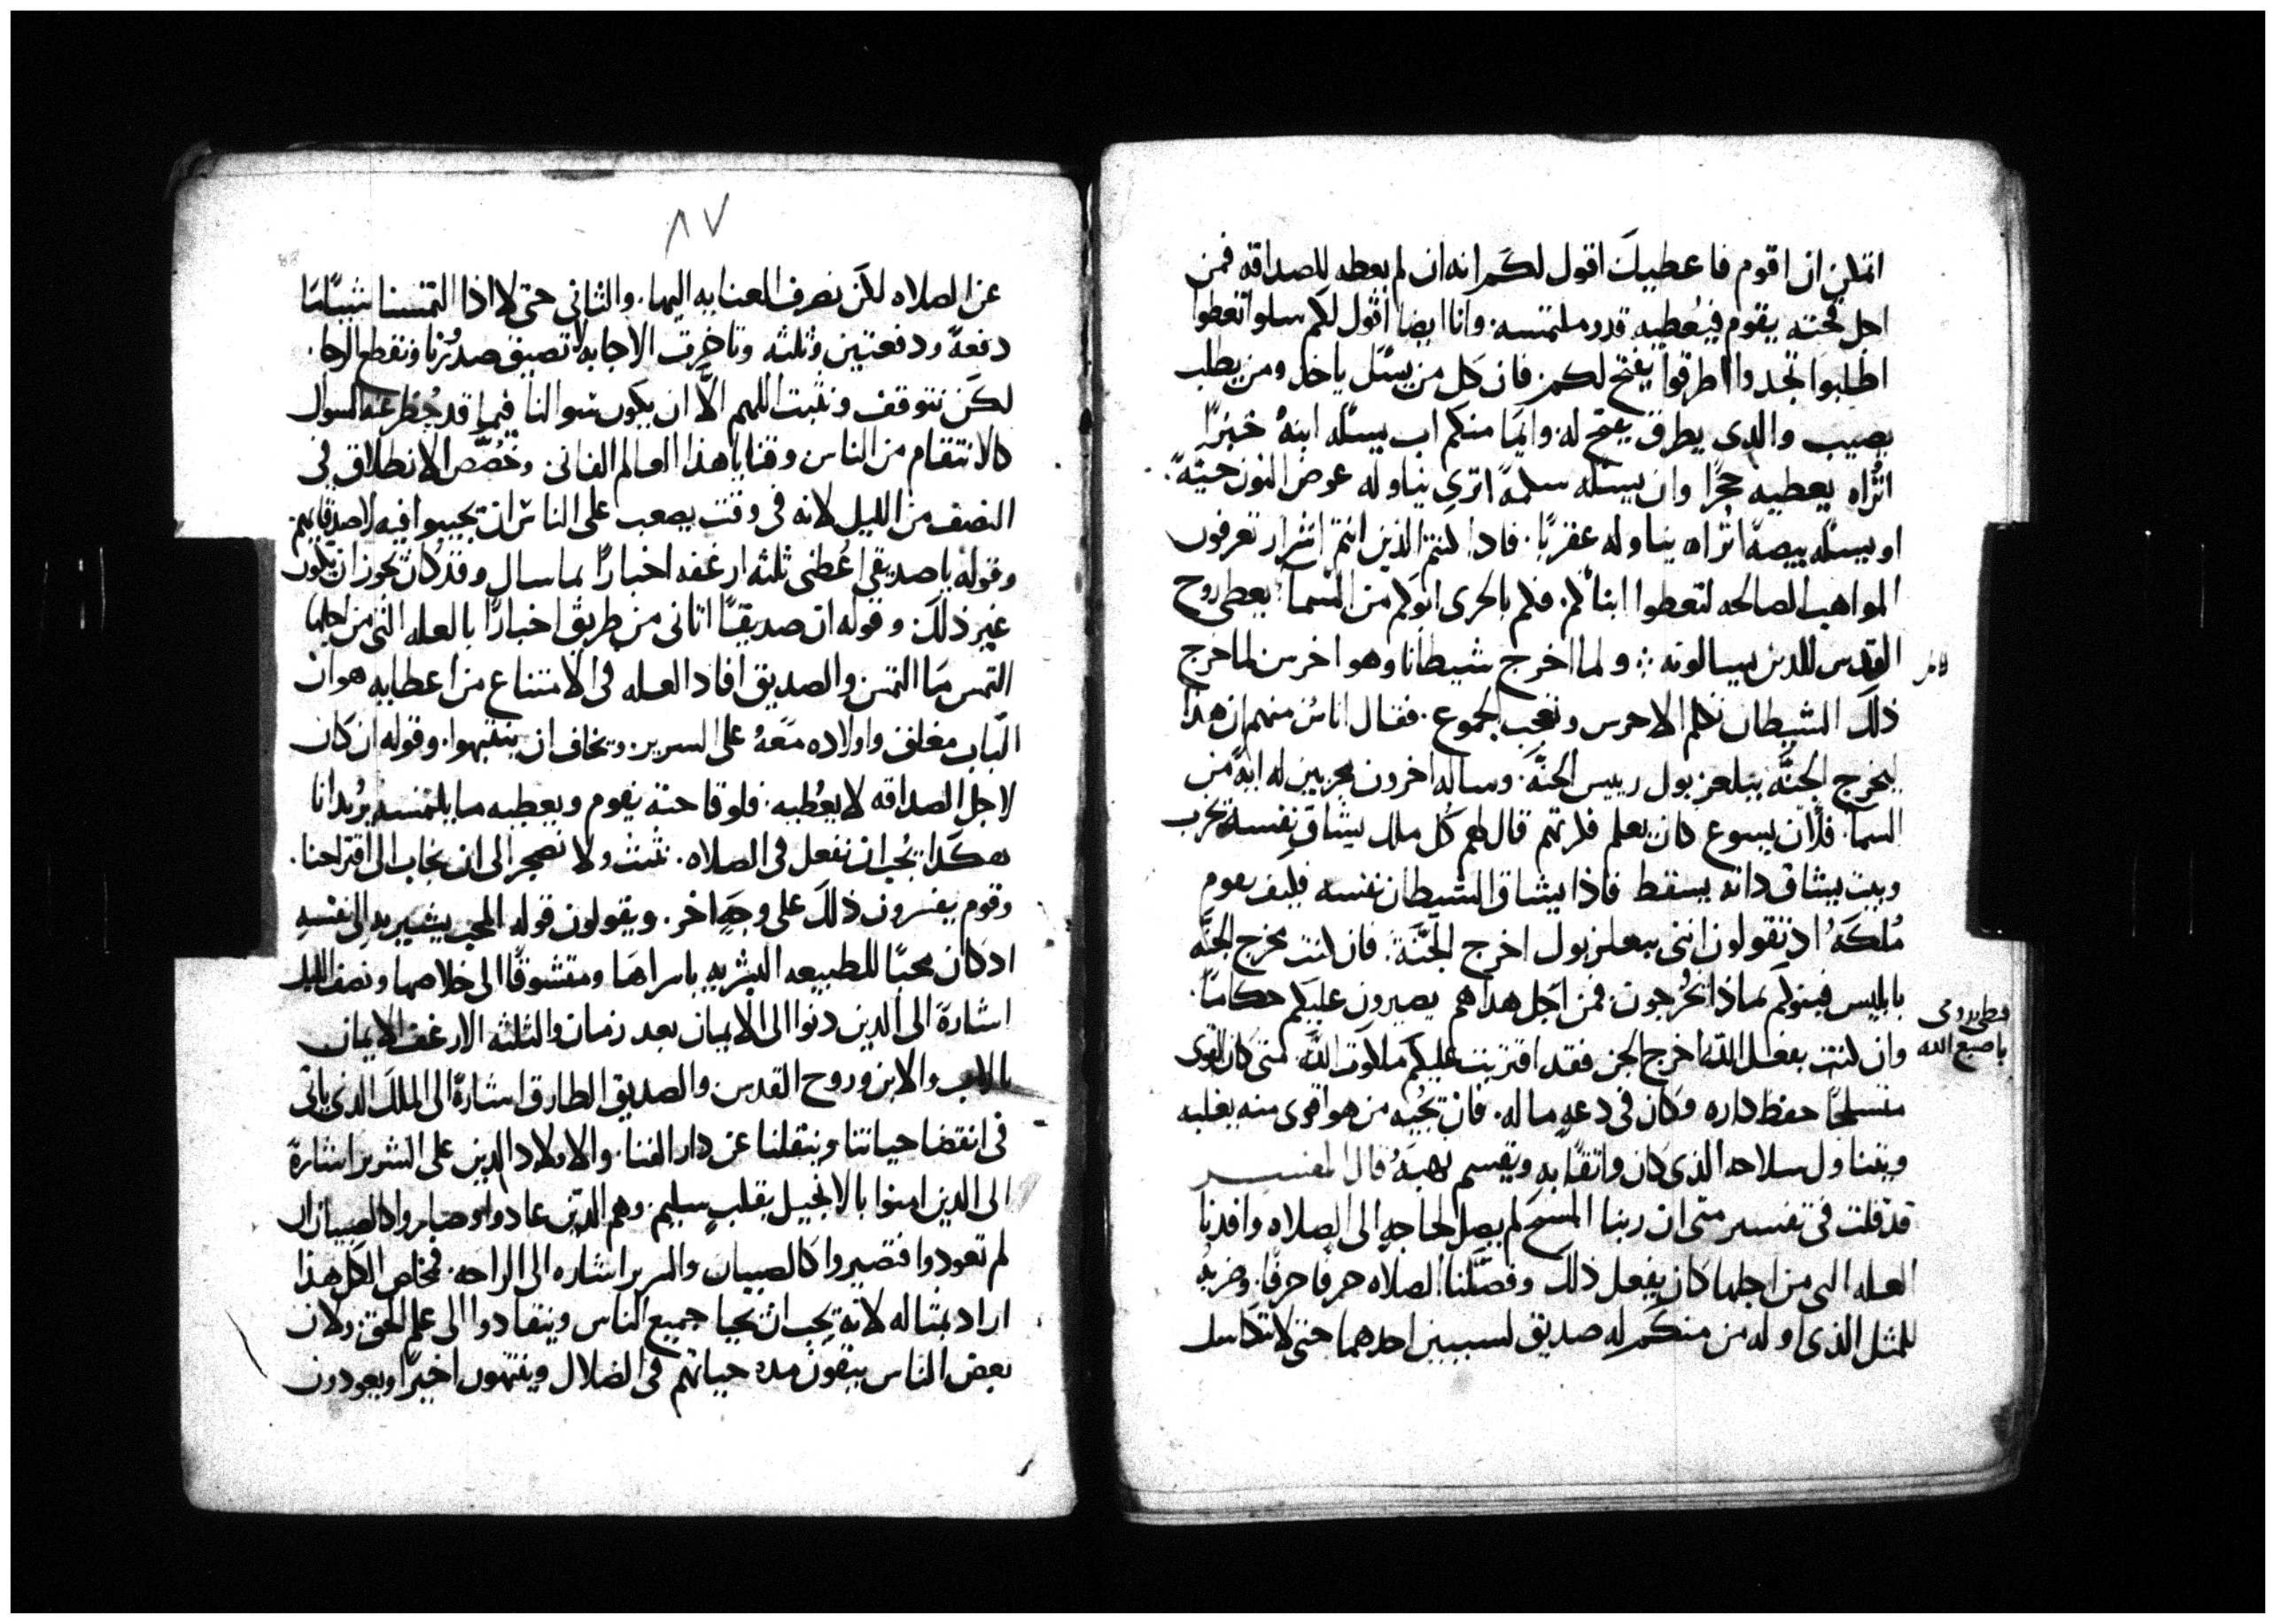 اتمكن ان اقوم فاعطيك اقول لكم انه ان لم يعطه للصداقه فمن
اجل قحته يقوم فيعطيه قدر ملتمسه. وانا ايضا اقول لكم سلوا تعطوا
اطلبوا تجدوا اطرقوا يفتح لكم. فان كل من يسئل ياخذ ومن يطلب
يصيب والدى يطرق يفتح له. وايما منكم اب يسئله ابنهُ خبزًا
اتُراه يعطيه حجرًا وان يسئله سمكةً اترى يناوله عوض النون حيّةً.
او يسئله بيضهً اتُراه يناوله عقربًا. فاذا كنتم الذين انتم اشرار تعرفون
المواهب الصالحه لتعطوا ابنائكم. فكم بالحرى ابوكم من السما يعطى روح
القدس للدين يسالونه ∴ ولما اخرج شيطانا وهو اخرس لما خرج
ذلك الشيطان تكلم الاخرس وتعجب الجموع. فقال اناسٌ منهم ان هذا
ليخرج الجنَّه ببلعزبول رييس الجنَّه. وساله اخرون مجربين له ايهً من
السما. فلان يسوع كان يعلم فكرتهم قال لهم كُل ملك يشاقِ نفسه يخرب
وبيت يشاق داته يسقط فاذا يشاق الشيطان نفسه فكيف يقوم
مُلكَهُ اذ تقولون اننى ببعلزبول اخرج الجنَّةَ. فان كنت اخرج الجنَّه
بابليس فبنوكم بماذا يُخْرجون. فمن اجل هذا هم يصيرون عليكم حكامًا.
وان كنت بفعل اللّه اخرج الجن فقد اقتربت عليكم ملكوت اللّه. متى كان القوى
متسلحًا حفظ داره وكان فى دعهٍ ماله. فان يجيُه من هو اقوى منه يغلبه
ويتناول سلاحه الذى كان واثقًا به ويقسم نهبَهُ قال المفسر
قد قلت فى تفسير متى ان ربنا المسيح لم يصل لحاجهٍ الى الصلاه وافدنا
العله التى من اجلها كان يفعل ذلك وفصَّلنا الصلاه حرفًا حرفًا. وضربهُ
للمثل الذى اوله من منكم له صديق لسببين احدهما حتى لا نتكاسل
قبطى رومى
باصبع الله
٨٧
عن الصلاه لكن نصرف العنايه اليها. والثانى حتى لا اذا التمسنا شيئًا ما
دفعةً ودفعتين وثلثه وتاخرت الاجابه لا تضيق صدُورنا ونقطع الرجا.
لكن نتوقف ونثبت اللهم الَّا ان يكون سوالنا فيما قد حُظر عنه السوال
كالانتقام من الناس وقنايا هذا العالم الفانى وخُصّص الانطلاق فى
النصف من الليل لانه فى وقت يصعب على الناس ان يجيبوا فيه لاصدقايهم.
وقوله يا صديقى اعُطنى ثلثه ارغفه اخبارًا بما سال وقد كان يجوز ان يكون
غير ذلك. وقوله ان صديقًا اتانى من طريق اخبارًا بالعله التى من اجلها
التمس مَا التمس والصديق افاد العله فى الامتناع من اعطايه هو ان
الباب مغلق واولاده مَعَهُ على السرير. ويخاف ان ينتبهوا. وقوله ان كان
لاجل الصداقه لا يعُطيه. فلوقاحته يقوم ويعطيه ما يلتمسه يُرُيدانا
هكدا يجُب ان نفعل فى الصلاه. نثبت ولا نضجر الى ان يجاب الى اقتراحنا.
وقوم يفسرون ذلك على وجهٍ اخر. ويقولون قوله المحب يشير به الى نفسهِ
ادكان محبًا للطبيعه البشريهِ باسراها ومتشوقًا الى خلاصها ونصف الليل
اشارة الى الدين دنوا الى الايمان بعد زمان والثلثه الارغف الايمان
بالاب والابن وروح القدس والصديق الطارق اشارةً الى الملك الذى ياتى
فى انقضا حياتنا وينقلنا عن دار الفنا. والاولاد الدين على السرير اشارةً
الى الدين امنوا بالانجيل بقلبٍ سليم. وهم الدين عادوا وصاروا كالصبيان ان
لم تعودوا فتصيروا كالصبيان والسرير اشاره الى الراحه. فخاص الكل هذا
اراد بمثاله لانه يجب ان يحيا جميع الناس وينقادوا الى علم الحق. ولان
بعض الناس يبقون مده حياتهم فى الضلال وينتهون اخيرًا ويعودون